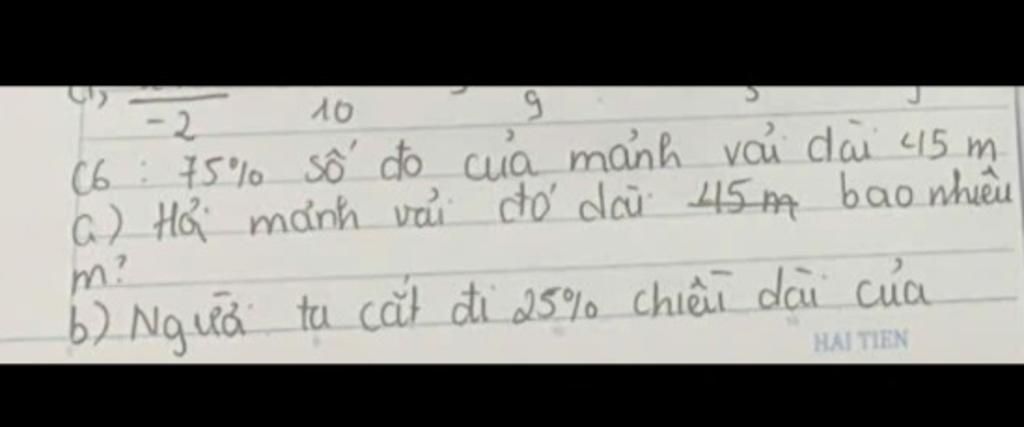 -2 10 9
C6 : 75% số đo của mảnh vải dài 45 m
a) Hỏi mảnh vải đó dài 45m bao nhiêu
m?
b) Người ta cắt đi 25% chiều dài của
HAI TIEN